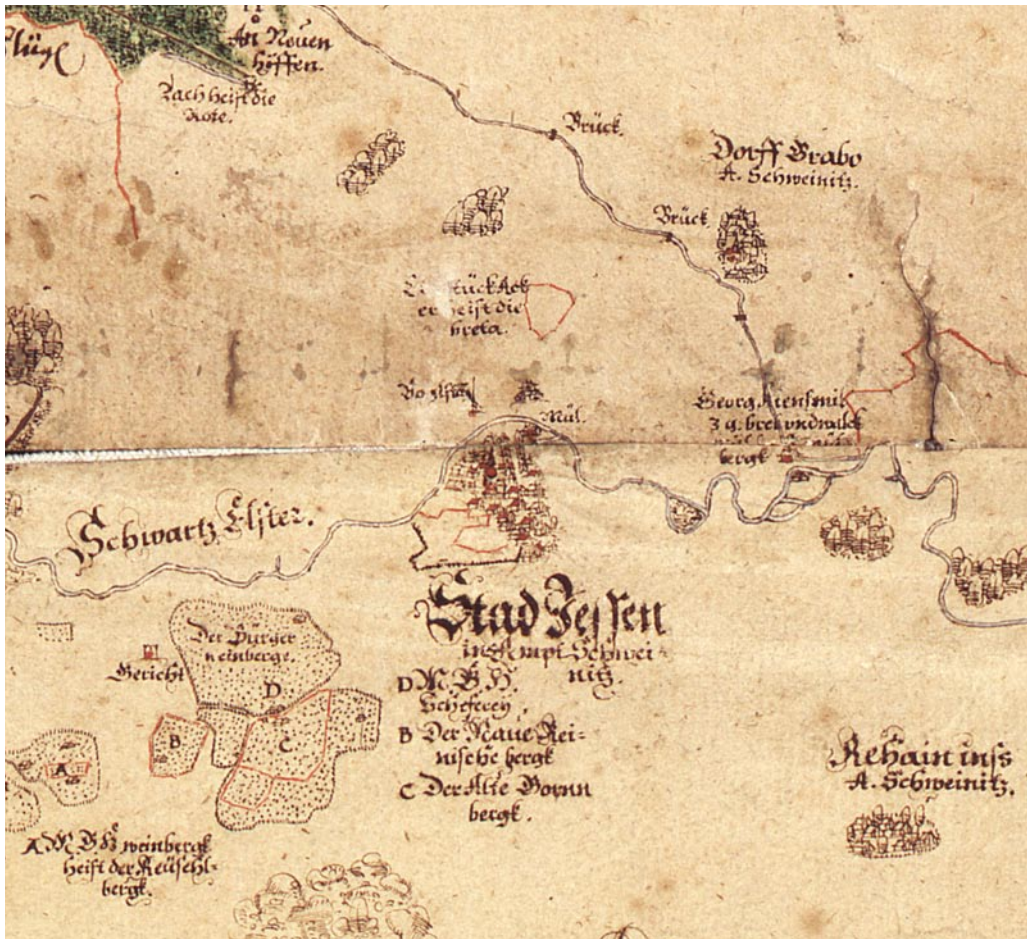 An Neuen
höffen.
heist die
Rote.
Brück.
Dorff Grabo
A. Schweinitz.
Brück.
stück Ack
er heist die
breta.
Mül.
Georg
bergk
Schwartz Elster.
Stad Jessen
ins Ampt Schwei-
nitz.
Der Bürger
weinberge.
Gericht
D
B
C
A
D M. G. H.
Scheferey.
B Der Naue Rei-
nische bergk
C Der Alte Bornn
bergk.
Rehain ins
A. Schweinitz.
A M. G. H. weinbergk
heist der
bergk.